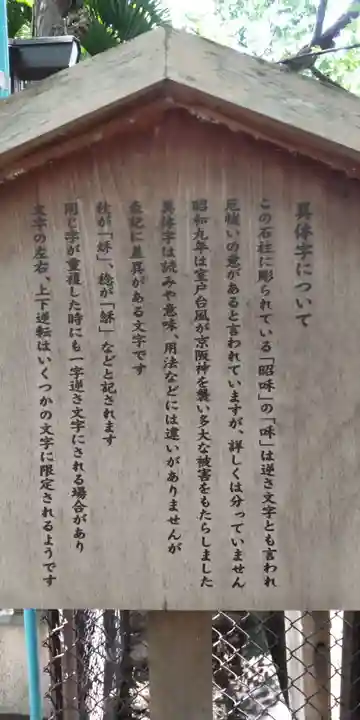 異体字について
この石柱に彫られている「昭咊」の「咊」は逆さ文字とも言われ
厄喰いの意があると言われていますが、詳しくは分っていません
昭和九年は室戸台風が京阪神を襲い多大な被害をもたらしました
異体字は読みや意味、用法などには違いがありませんが
表記に差異がある文字です
秋が「秌」、稔が「龢」などと記されます
同じ字が重複した時にも一字逆さ文字にされる場合があり
文字の左右、上下逆転はいくつかの文字に限定されるようです